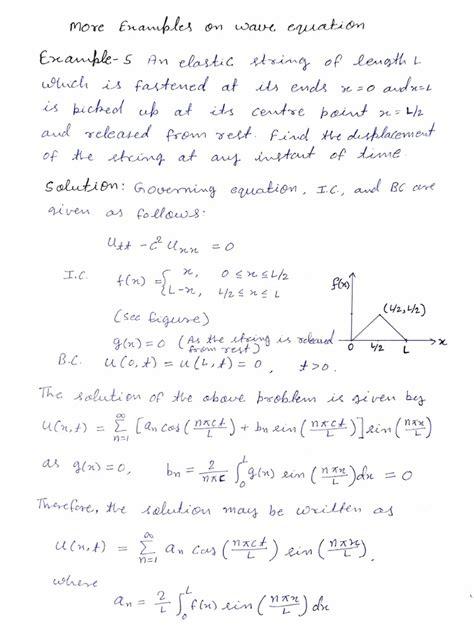 More Examples on wave equation
Example-5 An elastic string of length L
which is fastened at its ends x=0 and x=L
is picked up at its centre point x = L/2
and released from rest. Find the displacement
of the string at any instant of time.
Solution: Governing equation, I.C., and BC are
given as follows:
u_tt - c² u_xx = 0
I.C. f(x) = { x, 0 ≤ x ≤ L/2
L-x, L/2 ≤ x ≤ L
f(x)
(L/2, L/2)
0 L/2 L x
(see figure)
g(x) = 0 (As the string is released
from rest)
B.C. u(0,t) = u(L,t) = 0, t>0.
The solution of the above problem is given by
u(x,t) = ∑_{n=1}^{∞} [a_n cos(nπct/L) + b_n sin(nπct/L)] sin(nπx/L)
as g(x)=0, b_n = 2/nπc ∫_0^L g(x) sin(nπx/L) dx = 0
Therefore, the solution may be written as
u(x,t) = ∑_{n=1}^{∞} a_n cos(nπct/L) sin(nπx/L),
where
a_n = 2/L ∫_0^L f(x) sin(nπx/L) dx